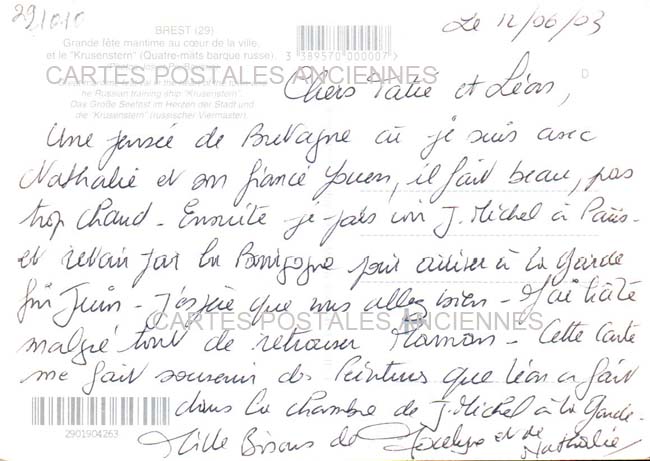 29/010
Le 12/06/03
BREST (29)
Grande fête maritime au cœur de la ville,
et le "Krusenstern" (Quatre-mâts barque russe).
3 389570 000007
CARTES POSTALES ANCIENNES
he Russian training ship "Krusenstern".
Das Große Seefest im Herzen der Stadt und
die "Krusenstern" (russischer Viermaster).
D
Chers Tatie et Léon,
Une pensée de Bretagne où je suis avec
Nathalie et son fiancé Youen, il fait beau, pas
trop chaud - Ensuite je vais voir J. Michel à Paris -
et retour par la Bourgogne pour arriver à la Garde
fin Juin - J'espère que vous allez bien - J'ai hâte
CARTES POSTALES ANCIENNES
malgré tout de retrouver Maman - Cette Carte
me fait souvenir des Peintures que Léon a fait
dans la chambre de J. Michel à la Garde -
2901904263
Mille Bisous de Jocelyne et de
Nathalie